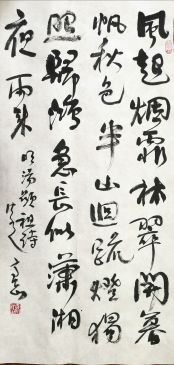 風起煙霏林翠開暮
帆秋色半山迴疏燈獨
照歸鴻急長似瀟湘
夜雨來
明湯顯祖詩